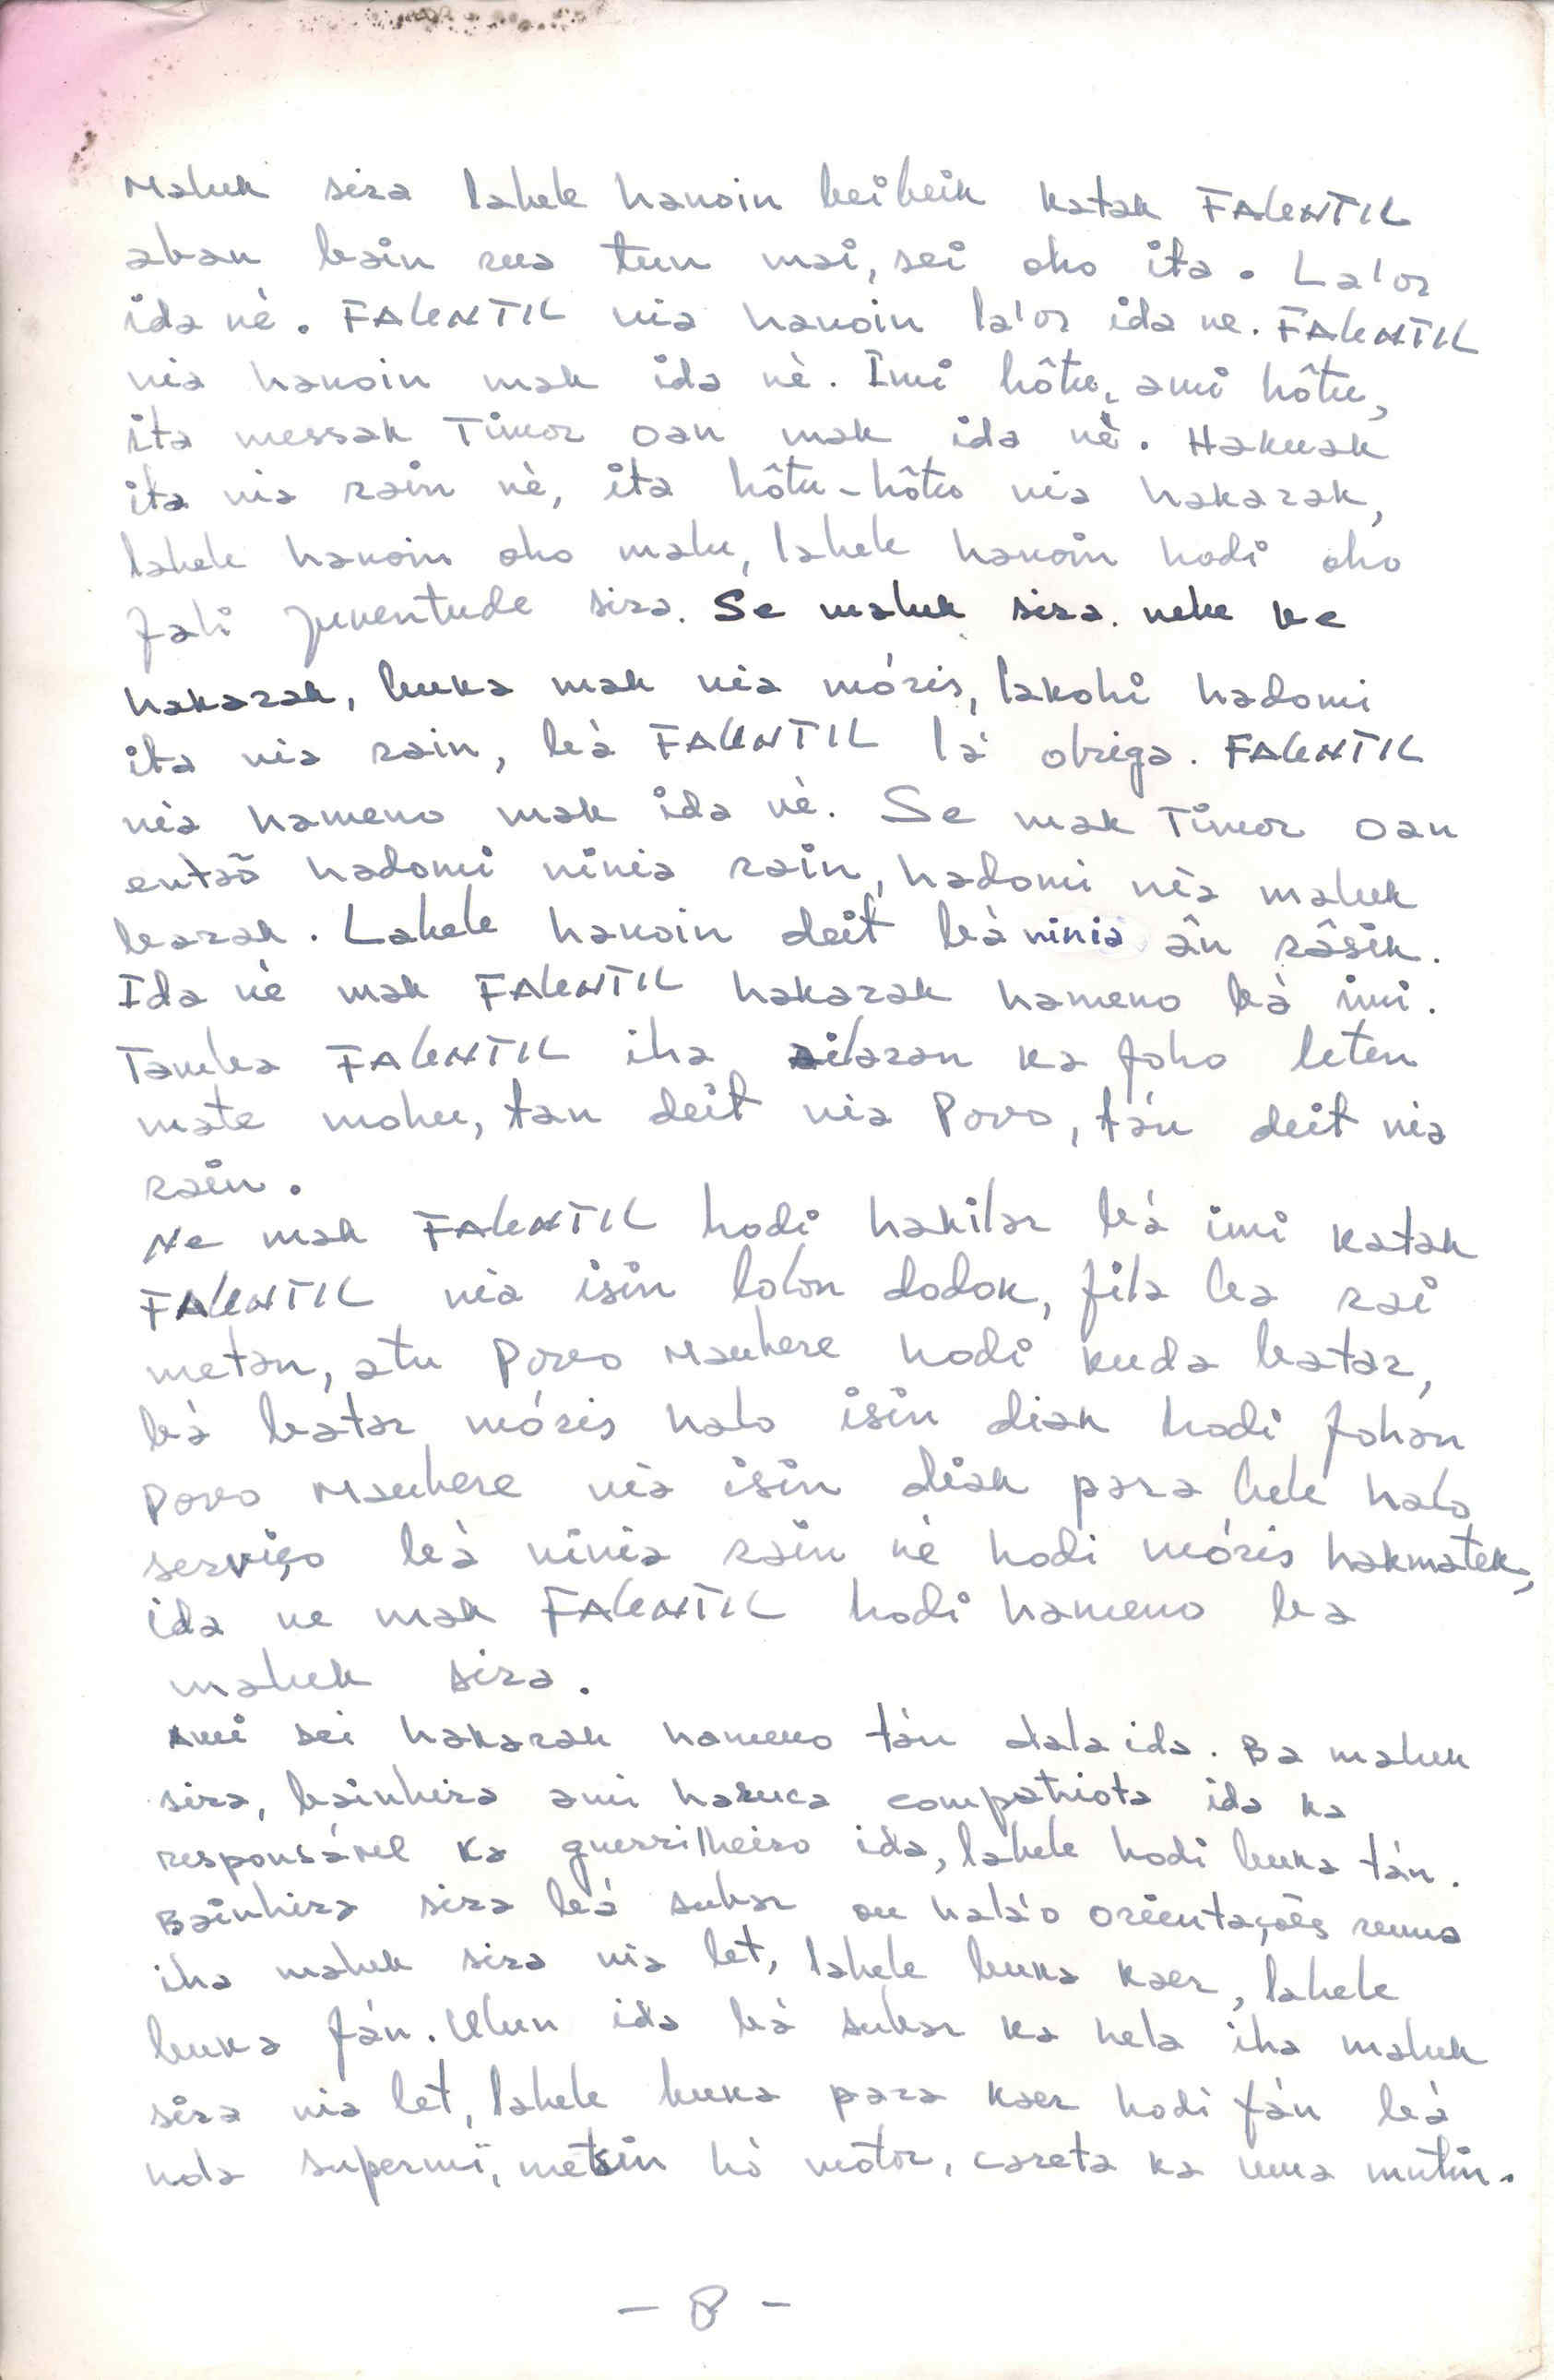 Maluk sira labele hanoin beibeik katak FALINTIL
aban bain rua tun mai, sei oho ita. La'os
ida nè. FALINTIL nia hanoin la'os ida ne. FALINTIL
nia hanoin mak ida nè. Imi hôtu, ami hôtu,
ita messak Timor oan mak ida nè. Hakuak
ita nia rain nè, ita hôtu-hôtu nia hakarak,
labele hanoin oho malu, labele hanoin hodi oho
fali juventude sira. Se maluk sira nebe ke
hakarak, buka mak nia móris, lakohi hadomi
ita nia rain, bá FALINTIL lá obriga. FALINTIL
nia hameno mak ida nè. Se mak Timor oan
entaõ hadomi ninia rain, hadomi nia maluk
barak. Labele hanoin deit bá ninia ân râsik.
Ida nè mak FALINTIL hakarak hameno bá imi.
Tamba FALINTIL iha ailaran ka foho leten
mate mohu, tan deit nia Povo, tán deit nia
rain.
Ne mak FALINTIL hodi hakilar bá imi katak
FALINTIL nia isin lolon dodok, fila ba rai
metan, atu Povo Maubere hodi kuda batar,
bá batar móris halo isin diak hodi fohan
Povo Maubere nia isin diak para bele halo
serviço bá ninia rain nè hodi móris hakmatek,
ida ne mak FALINTIL hodi hameno ba
maluk sira.
Ami sei hakarak hameno tán dala ida. Ba maluk
sira, bainhira ami haruca compatriota ida ka
responsável ka guerrilheiro ida, labele hodi buka tán.
Bainhira sira bá subar ou hala'o orientações ruma
iha maluk sira nia let, labele buka kaer, labele
buka fán. Ulun ida bá subar ka hela iha maluk
sira nia let, labele buka para kaer hodi fán bá
hola supermi, metsin hò motor, careta ka uma mutin.
- 8 -